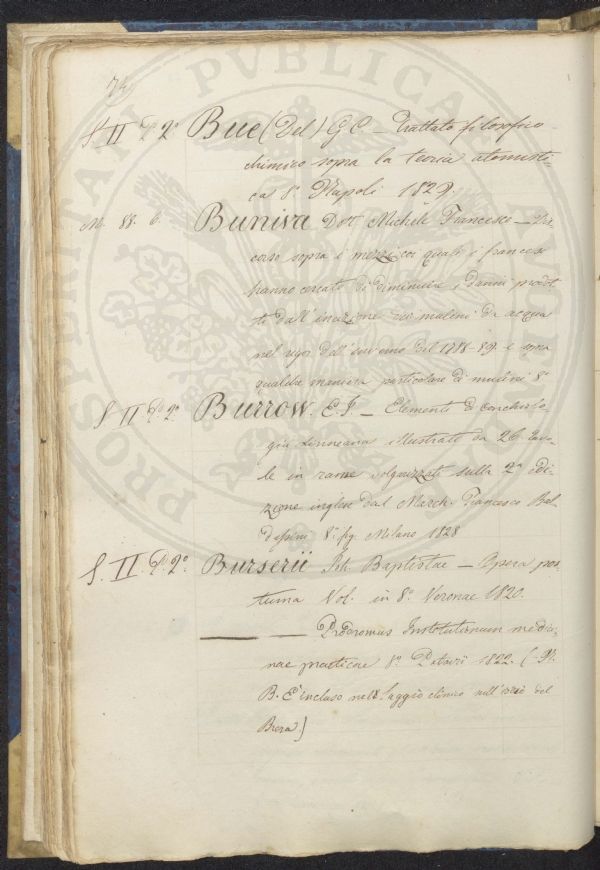 74
S II P.º 2º Bue (Del) G. C. — Trattato filosofico
chimico sopra la teoria atomisti-
ca 8º Napoli 1829.
M. 88. 6. Buniva Dott Michele Francesco — Dis
corso sopra i mezzi coi quali i francesi
hanno cercato di diminuire i danni prodot
ti dall'inazione dei mulini da acqua
nel rigor dell'inverno del 1788-89. e sopra
qualche maniera particolare di mulini 8º
S II. P.º 2º Burrow. E. F. — Elementi di conchiolo-
gia Linneana illustrati da 26 Tavo-
le in rame volgarizzati sulla 2ª edi-
zione inglese dal March. Francesco Bal
dassini 8º fig. Milano 1828
S. II. P.º 2º Burserii Joh. Baptistae — Opera pos
tuma Vol. in 8º Veronae 1820.
— — Prodromus Institutionum medici-
nae practicae 8º Patavii 1822. (N.
B. È incluso nel Saggio clinico sull' del
Brera.)
PROSPERIANA PVBLICA